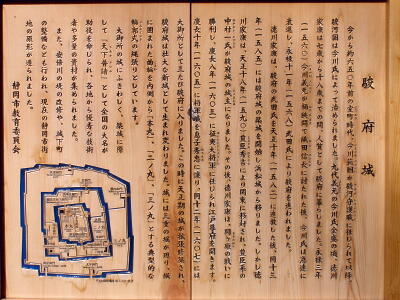 駿府城
今から約六五〇年前の室町時代、今川範国が駿河守護職に任じられて以降
駿河国は今川氏によって治められました。九代義元の今川氏全盛の頃、徳川
家康は七歳から十八歳までの間、人質として駿府に暮らしました。永禄三年
（一五六〇）今川義元が桶狭間で織田信長に討たれた後、今川氏は急速に
衰退し、永禄十一年（一五六八）武田氏により駿府を追われました。
徳川家康は、駿府の武田氏を天正十年（一五八二）に追放した後、同十三
年（一五八五）には駿府城の築城を開始し浜松城から移りました。しかし徳
川家康は、天正十八年（一五九〇）豊臣秀吉により関東に移封され、豊臣系の
中村一氏が駿府城の城主になりました。その後、徳川家康は、関ヶ原の戦いに
勝利し、慶長八年（一六〇三）に征夷大将軍に任じられ江戸幕府を開きます。
慶長十年（一六〇五）に将軍職を息子秀忠に譲り、同十二年（一六〇七）には
大御所として三たび駿府に入りました。この時に天正期の城が拡張修築され、
駿府城は壮大な新城として生まれ変わりました。城には三重の堀が廻り、堀
に囲まれた曲輪を内側から「本丸」、「二ノ丸」、「三ノ丸」とする典型的な
輪郭式の縄張りとしています。
大御所の城にふさわしく、築城に際
して「天下普請」として全国の大名が
助役を命じられ、各地から優秀な技術
者や多量の資材が集められました。
また、安倍川の堤の改修や、城下町
の整備なども行われ、現在の静岡市街
地の原形が造られました。
静岡市教育委員会